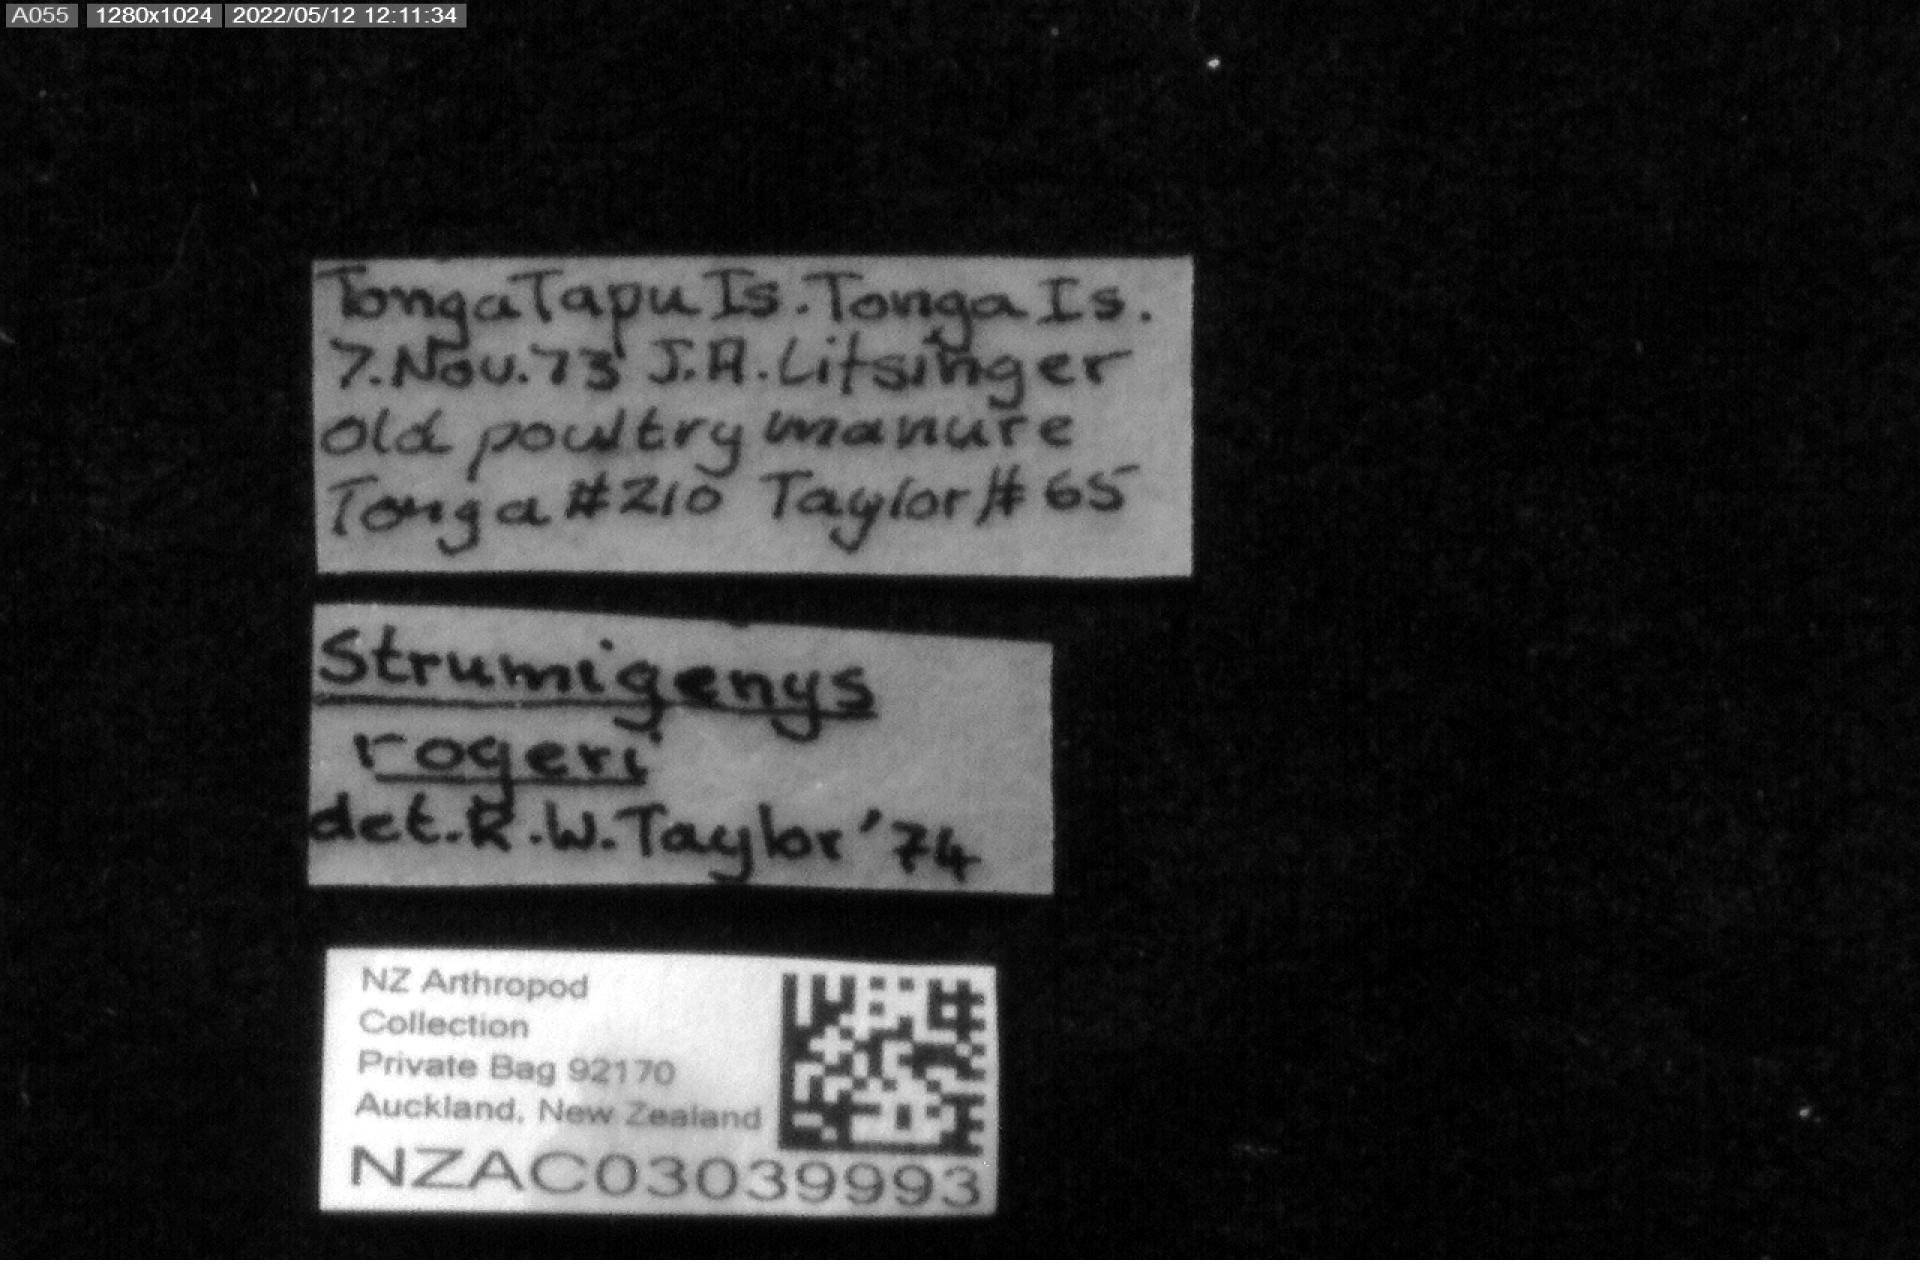 A055 1280x1024 2022/05/12 12:11:34
TongaTapu Is. Tonga Is.
7. Nov. 73 J.A. Litsinger
old poultry manure
Tonga #210 Taylor # 65
Strumigenys
rogeri
det. R.W. Taylor '74
NZ Arthropod
Collection
Private Bag 92170
Auckland, New Zealand
NZAC03039993